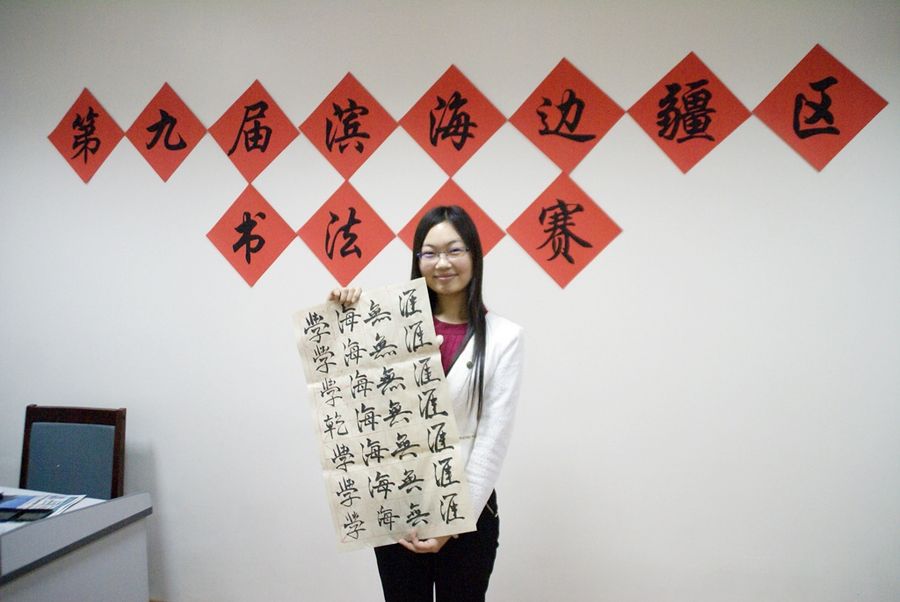 第九届滨海边疆区
书法赛
学海無涯
学海無涯
学海無涯
乾海無涯
学海無涯
学海無涯
学海無涯